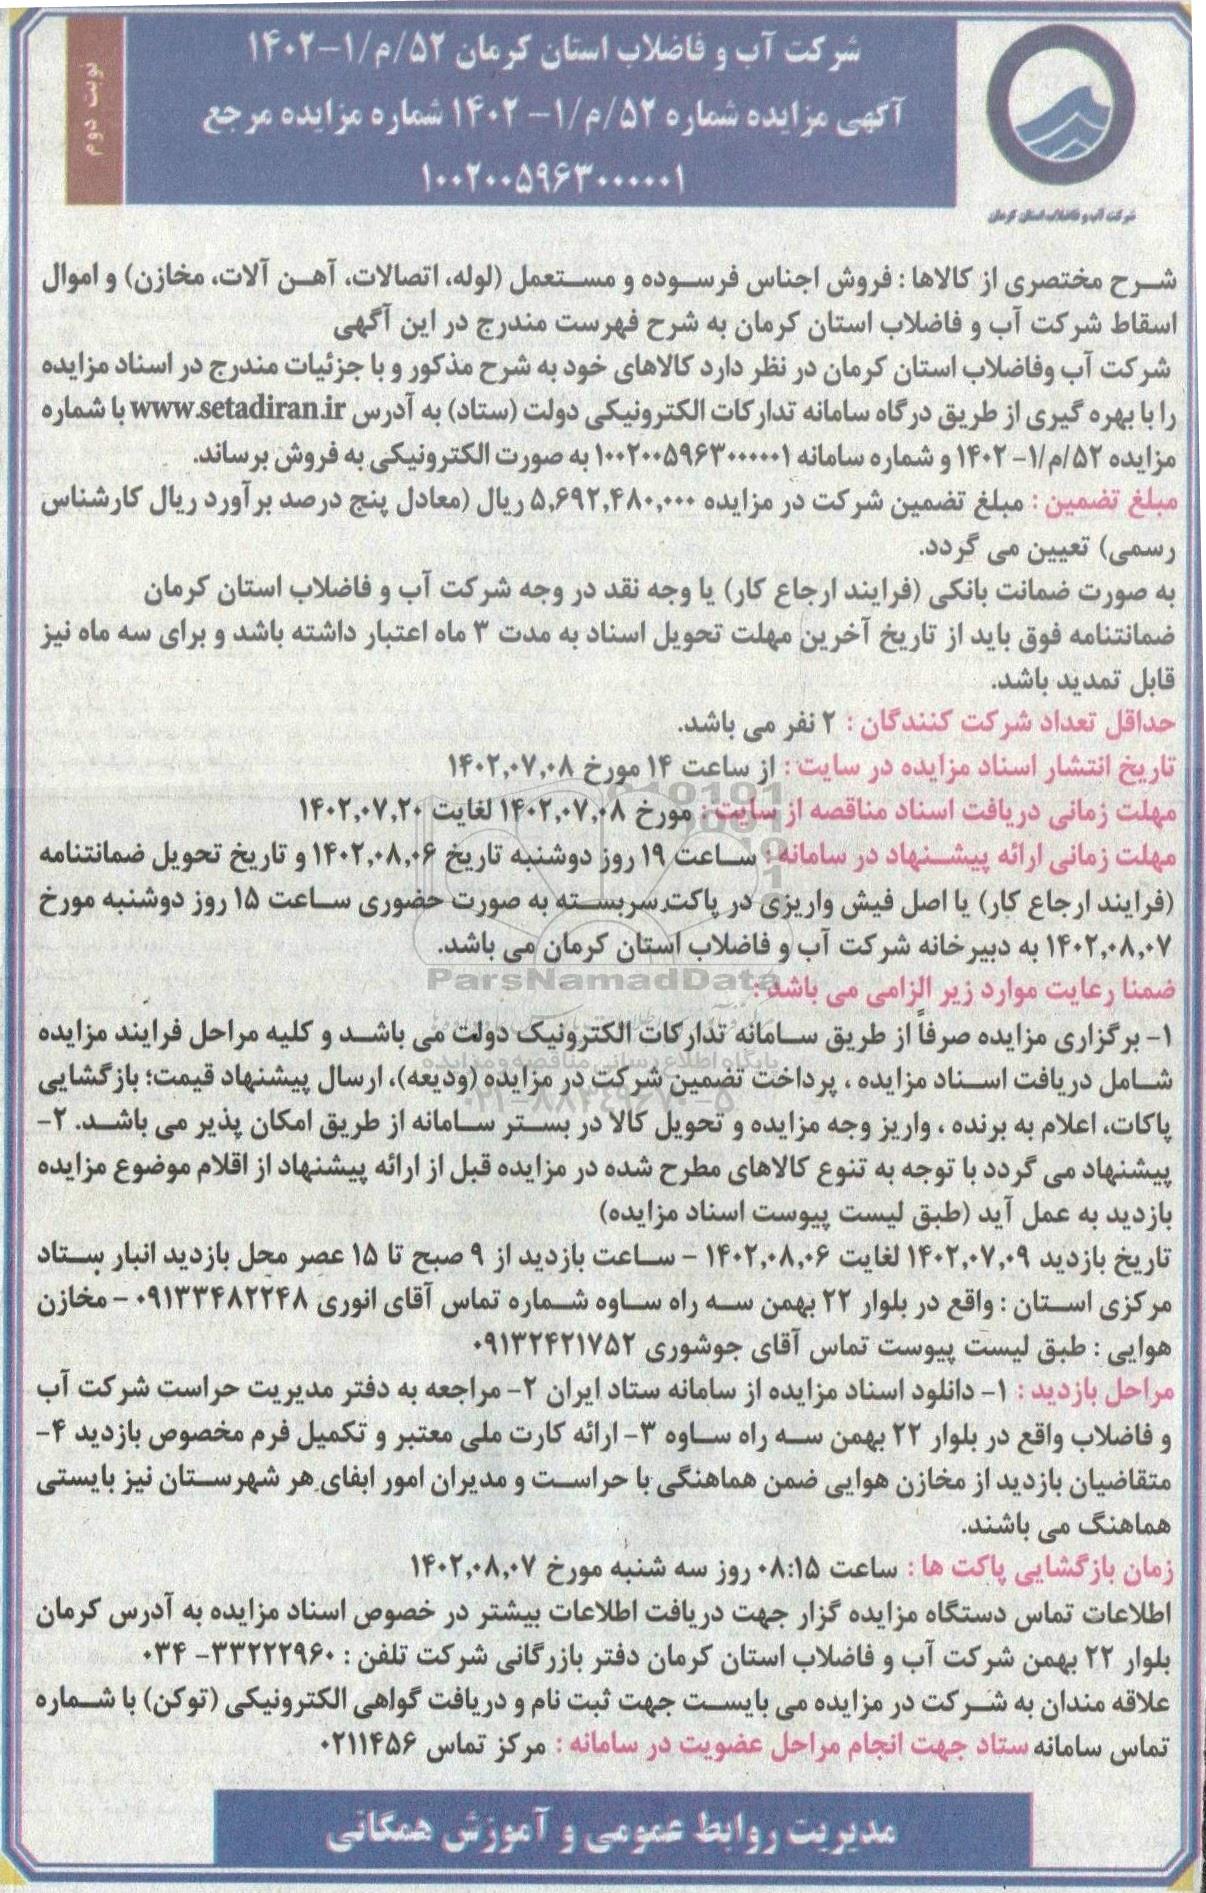 شرکت آب و فاضلاب استان کرمان ۵۲/م/۱-۱۴۰۲
آگهی مزایده شماره ۵۲/م/۱- ۱۴۰۲ شماره مزایده مرجع
۱۰۰۲۰۰۵۹۶۳۰۰۰۰۰۱
نوبت دوم
شرکت آب و فاضلاب استان کرمان
شرح مختصری از کالاها : فروش اجناس فرسوده و مستعمل (لوله، اتصالات، آهن آلات، مخازن) و اموال
اسقاط شرکت آب و فاضلاب استان کرمان به شرح فهرست مندرج در این آگهی
شرکت آب وفاضلاب استان کرمان در نظر دارد کالاهای خود به شرح مذکور و با جزئیات مندرج در اسناد مزایده
را با بهره گیری از طریق درگاه سامانه تدارکات الکترونیکی دولت (ستاد) به آدرس www.setadiran.ir با شماره
مزایده ۵۲/م/۱- ۱۴۰۲ و شماره سامانه ۱۰۰۲۰۰۵۹۶۳۰۰۰۰۰۱ به صورت الکترونیکی به فروش برساند.
مبلغ تضمین : مبلغ تضمین شرکت در مزایده ۵,۶۹۲,۴۸۰,۰۰۰ ریال (معادل پنج درصد برآورد ریال کارشناس
رسمی) تعیین می گردد.
به صورت ضمانت بانکی (فرایند ارجاع کار) یا وجه نقد در وجه شرکت آب و فاضلاب استان کرمان
ضمانتنامه فوق باید از تاریخ آخرین مهلت تحویل اسناد به مدت ۳ ماه اعتبار داشته باشد و برای سه ماه نیز
قابل تمدید باشد.
حداقل تعداد شرکت کنندگان : ۲ نفر می باشد.
تاریخ انتشار اسناد مزایده در سایت : از ساعت ۱۴ مورخ ۱۴۰۲,۰۷,۰۸
مهلت زمانی دریافت اسناد مناقصه از سایت : مورخ ۱۴۰۲,۰۷,۰۸ لغایت ۱۴۰۲,۰۷,۲۰
مهلت زمانی ارائه پیشنهاد در سامانه : ساعت ۱۹ روز دوشنبه تاریخ ۱۴۰۲,۰۸,۰۶ و تاریخ تحویل ضمانتنامه
(فرایند ارجاع کار) یا اصل فیش واریزی در پاکت سربسته به صورت حضوری ساعت ۱۵ روز دوشنبه مورخ
۱۴۰۲,۰۸,۰۷ به دبیرخانه شرکت آب و فاضلاب استان کرمان می باشد.
ParsNamadData
ضمنا رعایت موارد زیر الزامی می باشد :
۱- برگزاری مزایده صرفاً از طریق سامانه تدارکات الکترونیک دولت می باشد و کلیه مراحل فرایند مزایده
پایگاه اطلاع رسانی مناقصه و مزایده
شامل دریافت اسناد مزایده ، پرداخت تضمین شرکت در مزایده (ودیعه)، ارسال پیشنهاد قیمت؛ بازگشایی
۰۲۱-۸۸۳۴۹۶۷۰-۵
پاکات، اعلام به برنده ، واریز وجه مزایده و تحویل کالا در بستر سامانه از طریق امکان پذیر می باشد. ۲-
پیشنهاد می گردد با توجه به تنوع کالاهای مطرح شده در مزایده قبل از ارائه پیشنهاد از اقلام موضوع مزایده
بازدید به عمل آید (طبق لیست پیوست اسناد مزایده)
تاریخ بازدید ۱۴۰۲,۰۷,۰۹ لغایت ۱۴۰۲,۰۸,۰۶ - ساعت بازدید از ۹ صبح تا ۱۵ عصر محل بازدید انبار ستاد
مرکزی استان : واقع در بلوار ۲۲ بهمن سه راه ساوه شماره تماس آقای انوری ۰۹۱۳۳۴۸۲۲۴۸ - مخازن
هوایی : طبق لیست پیوست تماس آقای جوشوری ۰۹۱۳۲۴۲۱۷۵۲
مراحل بازدید : ۱- دانلود اسناد مزایده از سامانه ستاد ایران ۲- مراجعه به دفتر مدیریت حراست شرکت آب
و فاضلاب واقع در بلوار ۲۲ بهمن سه راه ساوه ۳- ارائه کارت ملی معتبر و تکمیل فرم مخصوص بازدید ۴-
متقاضیان بازدید از مخازن هوایی ضمن هماهنگی با حراست و مدیران امور ابفای هر شهرستان نیز بایستی
هماهنگ می باشند.
زمان بازگشایی پاکت ها : ساعت ۰۸:۱۵ روز سه شنبه مورخ ۱۴۰۲,۰۸,۰۷
اطلاعات تماس دستگاه مزایده گزار جهت دریافت اطلاعات بیشتر در خصوص اسناد مزایده به آدرس کرمان
بلوار ۲۲ بهمن شرکت آب و فاضلاب استان کرمان دفتر بازرگانی شرکت تلفن : ۳۳۲۲۲۹۶۰- ۰۳۴
علاقه مندان به شرکت در مزایده می بایست جهت ثبت نام و دریافت گواهی الکترونیکی (توکن) با شماره
تماس سامانه ستاد جهت انجام مراحل عضویت در سامانه : مرکز تماس ۰۲۱۱۴۵۶
مدیریت روابط عمومی و آموزش همگانی